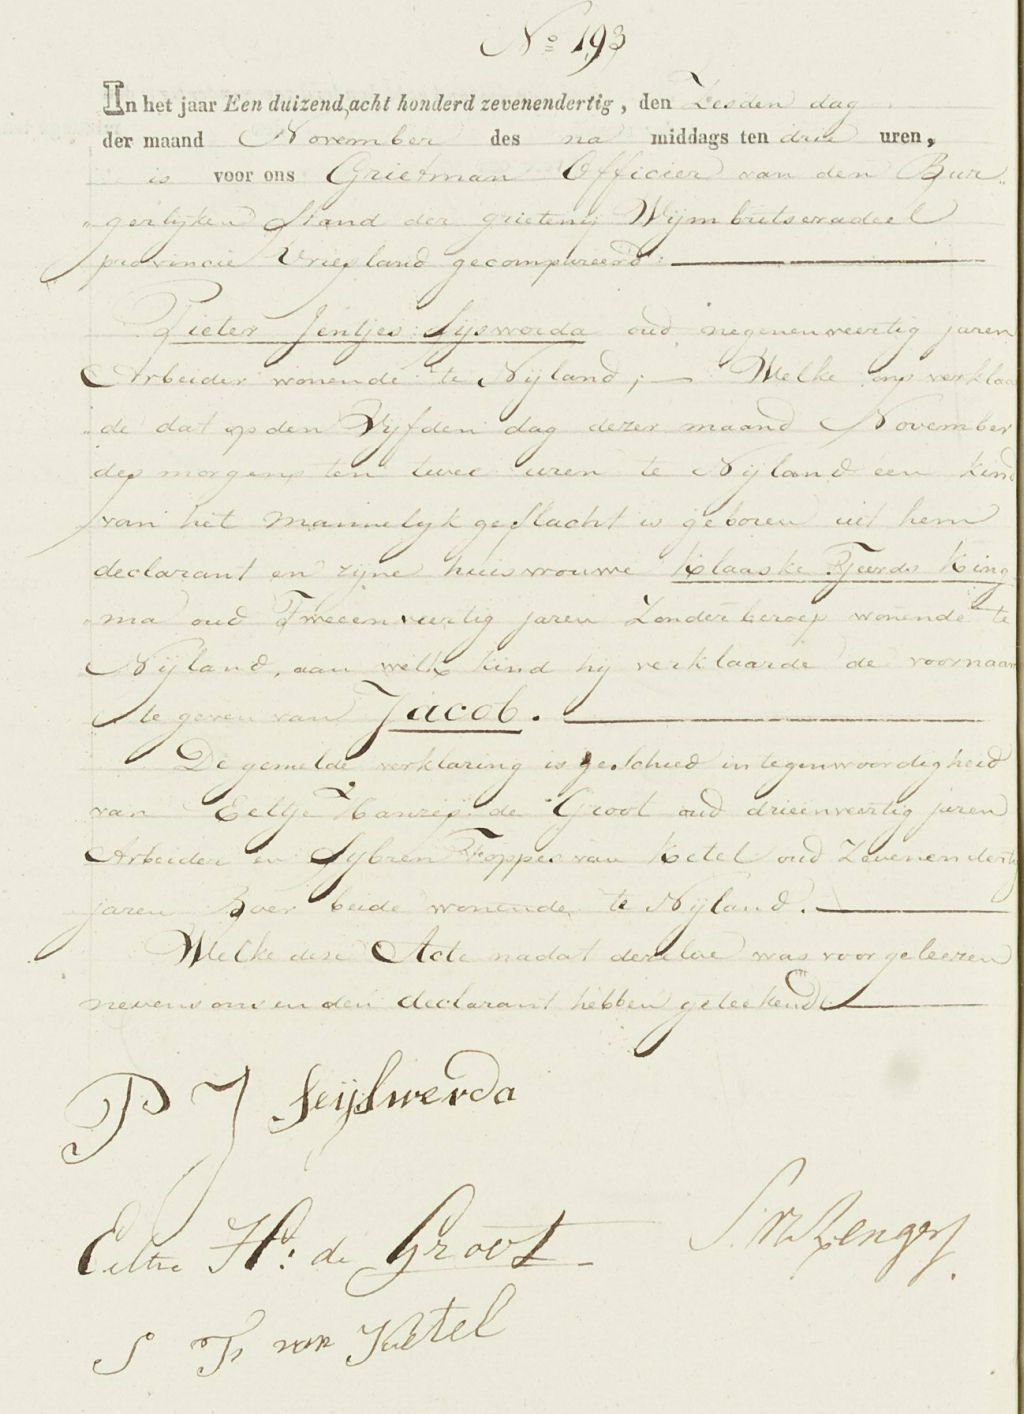 No 193
In het jaar Een duizend acht honderd zevenendertig, den Zesden dag
der maand November des na middags ten drie uren,
is voor ons Grietman Officier van den Bur-
gerlijken Stand der grietenij Wijmbritseradeel
provincie Vriesland gecompareerd:
Pieter Jentjes Sijswerda oud negenenveertig jaren
Arbeider wonende te Nijland; Welke ons verklaar
de dat op den Vijfden dag dezer maand November
des morgens ten twee uren te Nijland een kind
van het mannelijk geslacht is geboren uit hem
declarant en zijne huisvrouwe Klaaske Tjeerds King
ma oud Tweeenveertig jaren Zonder beroep wonende te
Nijland, aan welk kind hij verklaarde de voornaam
te geven van Jacob.
De gemelde verklaring is geschied in tegenwoordigheid
van Eeltje Hanzes de Groot oud drieenveertig jaren
Arbeider en Sybren Foppes van Ketel oud Zevenendertig
jaren Boer beide wonende te Nijland.
Welke deze Acte nadat dezelve was voorgeleezen
nevens ons en den declarant hebben geteekend
P J Seijswerda
Eeltie H: de Groot
S. Zengers.
S F van Ketel